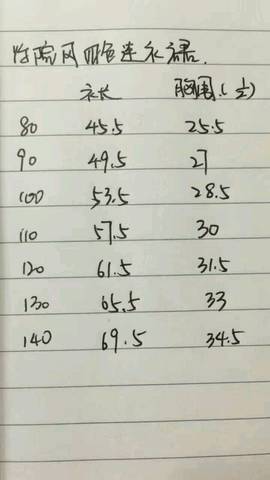 学院风四色连衣裙.
衣长 胸围(1/2)
80 45.5 25.5
90 49.5 27
100 53.5 28.5
110 57.5 30
120 61.5 31.5
130 65.5 33
140 69.5 34.5